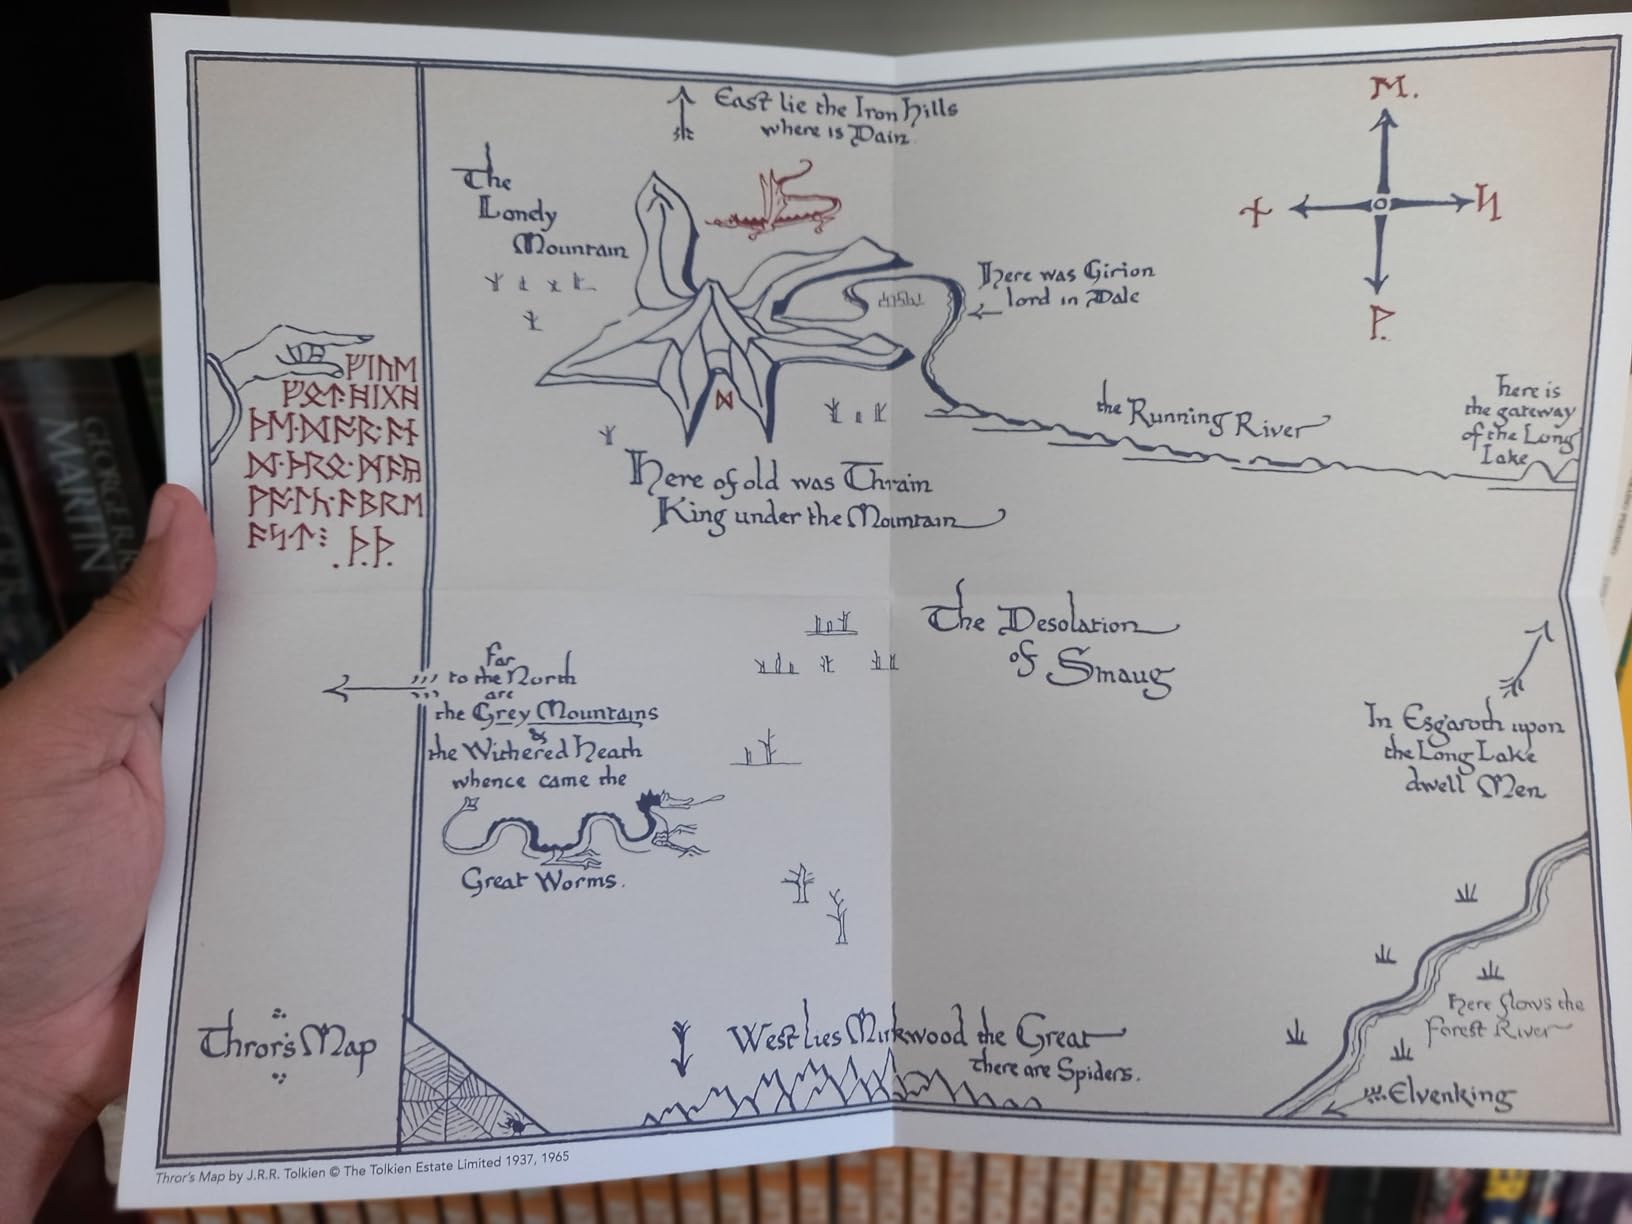 East lie the Iron Hills
where is Dain
The
Lonely
Mountain
ᛖ.
ᚾ
ᛋ
ᚹ.
Here was Girion
lord in Dale
ᚠᛁᚢᛖ
ᚠᛟᛏ·ᚻᛁᚷᚻ
ᚦᛖ·ᛞᚩᚱ·ᚫᚾ
ᛞ·ᚦᚱᛟ·ᛗᚫᚣ
ᚹᚫᛚᚳ·ᚫᛒᚱᛖ
ᚫᛋᛏ⁝ .ᚦ.ᚦ.
ᛞ
the Running River
Here is
the gateway
of the Long
Lake
Here of old was Thrain
King under the Mountain
The Desolation
of Smaug
Far
to the North
are
the Grey Mountains
&
the Withered Heath
whence came the
Great Worms.
In Esgaroth upon
the Long Lake
dwell Men
Here flows the
Forest River
Elvenking
West lies Mirkwood the Great
there are Spiders.
Thror's Map
Thror's Map by J.R.R. Tolkien © The Tolkien Estate Limited 1937, 1965
GEORGE R.R.
MARTIN